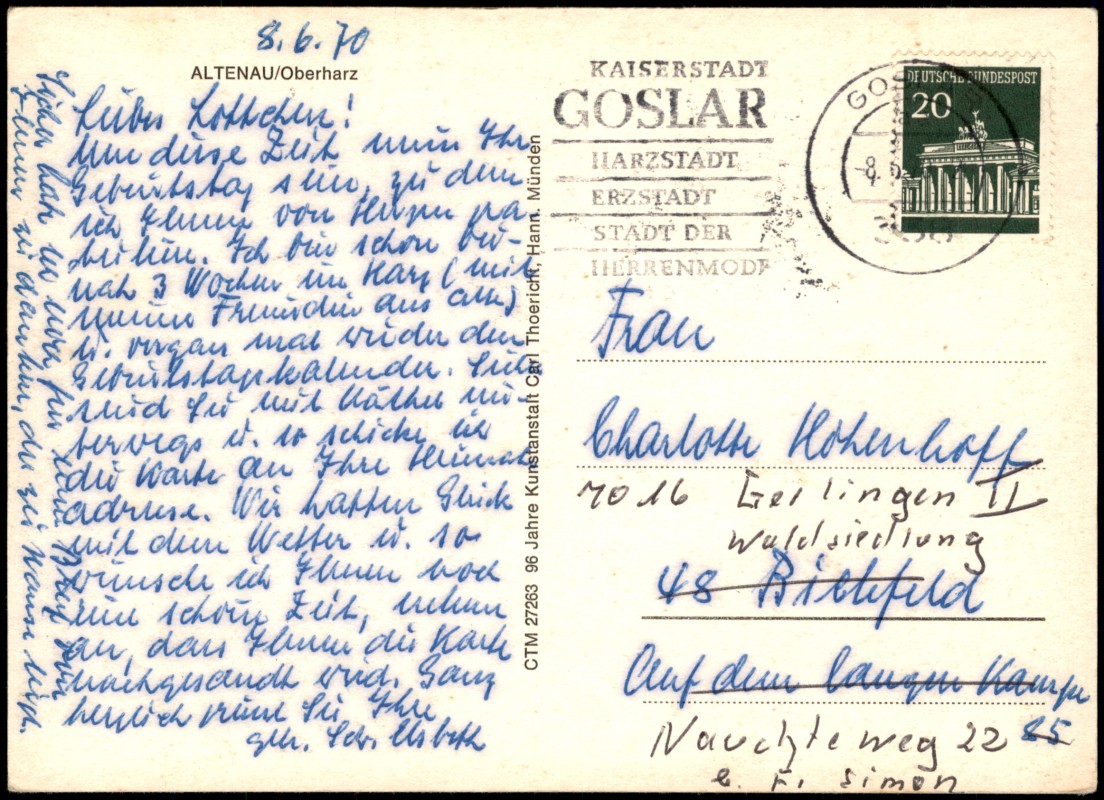 8.6.70
ALTENAU/Oberharz
Liebes Lottchen!
Um diese Zeit muss Ihr
Geburtstag sein, zu dem
ich Ihnen von Herzen gra-
tuliere. Ich bin schon bei-
nah 3 Wochen im Harz (mit
meiner Freundin aus
u. vergass mal wieder den
Geburtstagskalender. Sicher
sind Sie mit Käthe un-
terwegs u. so schicke ich
die Karte an Ihre Heimat
adresse. Wir hatten Glück
mit dem Wetter u. so
wünsche ich Ihnen noch
eine schöne Zeit, nehme
an, dass Ihnen die Karte
nachgesandt wird. Ganz
herzlich grüsst Sie Ihre
Elsbeth
Sicher habe ich noch für
Ihnen zu danken, der zu Hause liegt.
CTM 27263 96 Jahre Kunstanstalt Carl Thoericht, Hann. Münden
KAISERSTADT
GOSLAR
HARZSTADT
ERZSTADT
STADT DER
HERRENMODE
DEUTSCHE BUNDESPOST
20
Frau
Charlotte Hohenhoff
7016 Gerlingen II
Waldsiedlung
48 Bielefeld
Auf dem langen Kampe
85
weg 22
b. Fr. Simon